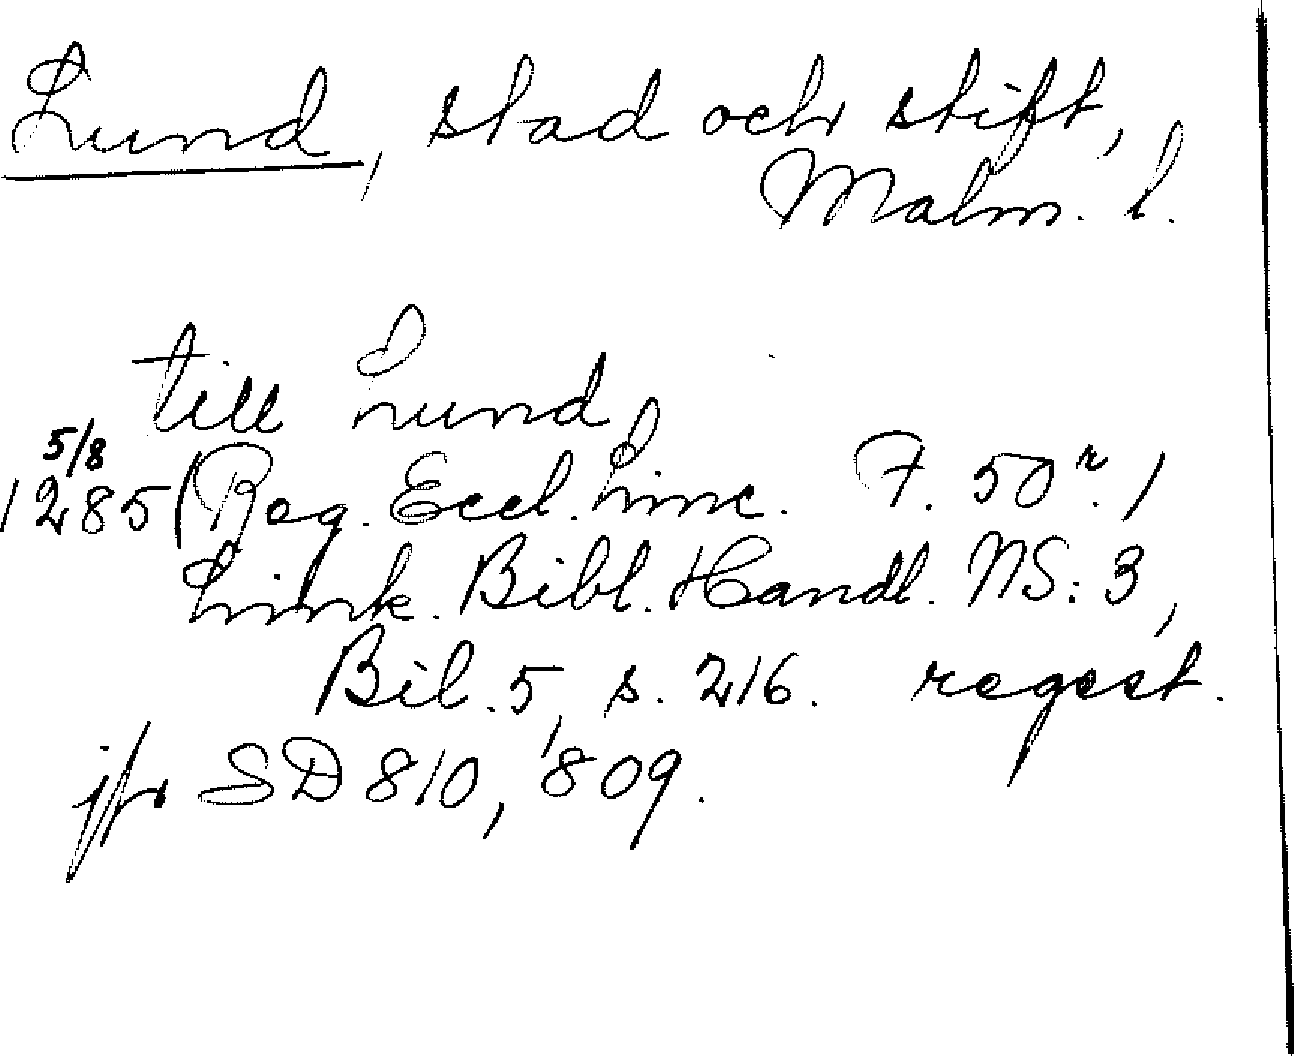 Lund, stad och stift,
Malm. l.
till Lund
5/8
1285 (Reg. Eccl. Linc. F. 50r.)
Link. Bibl. Handl. NS: 3,
Bil. 5, s. 216. regest.
jfr SD 810, 809.